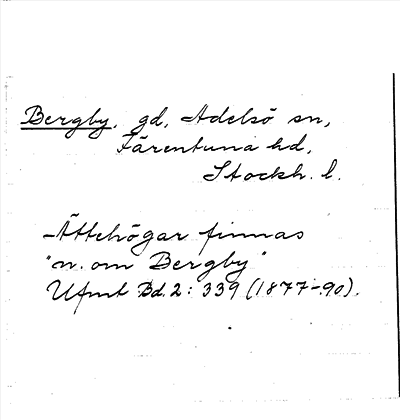 Bergby, gd, Adelsö sn,
Färentuna hd,
Stockh. l.
Ättehögar finnas
"n. om Bergby"
Ufmt Bd. 2: 339 (1877-90).